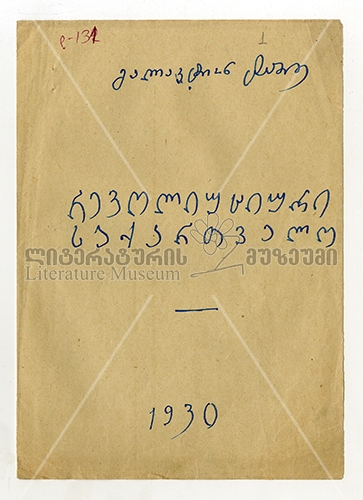 დ-131
1
გალაკტიონ ტაბიძე
რევოლიუციური
საქართველო
ლიტერატურის მუზეუმი
Literature Museum
1930